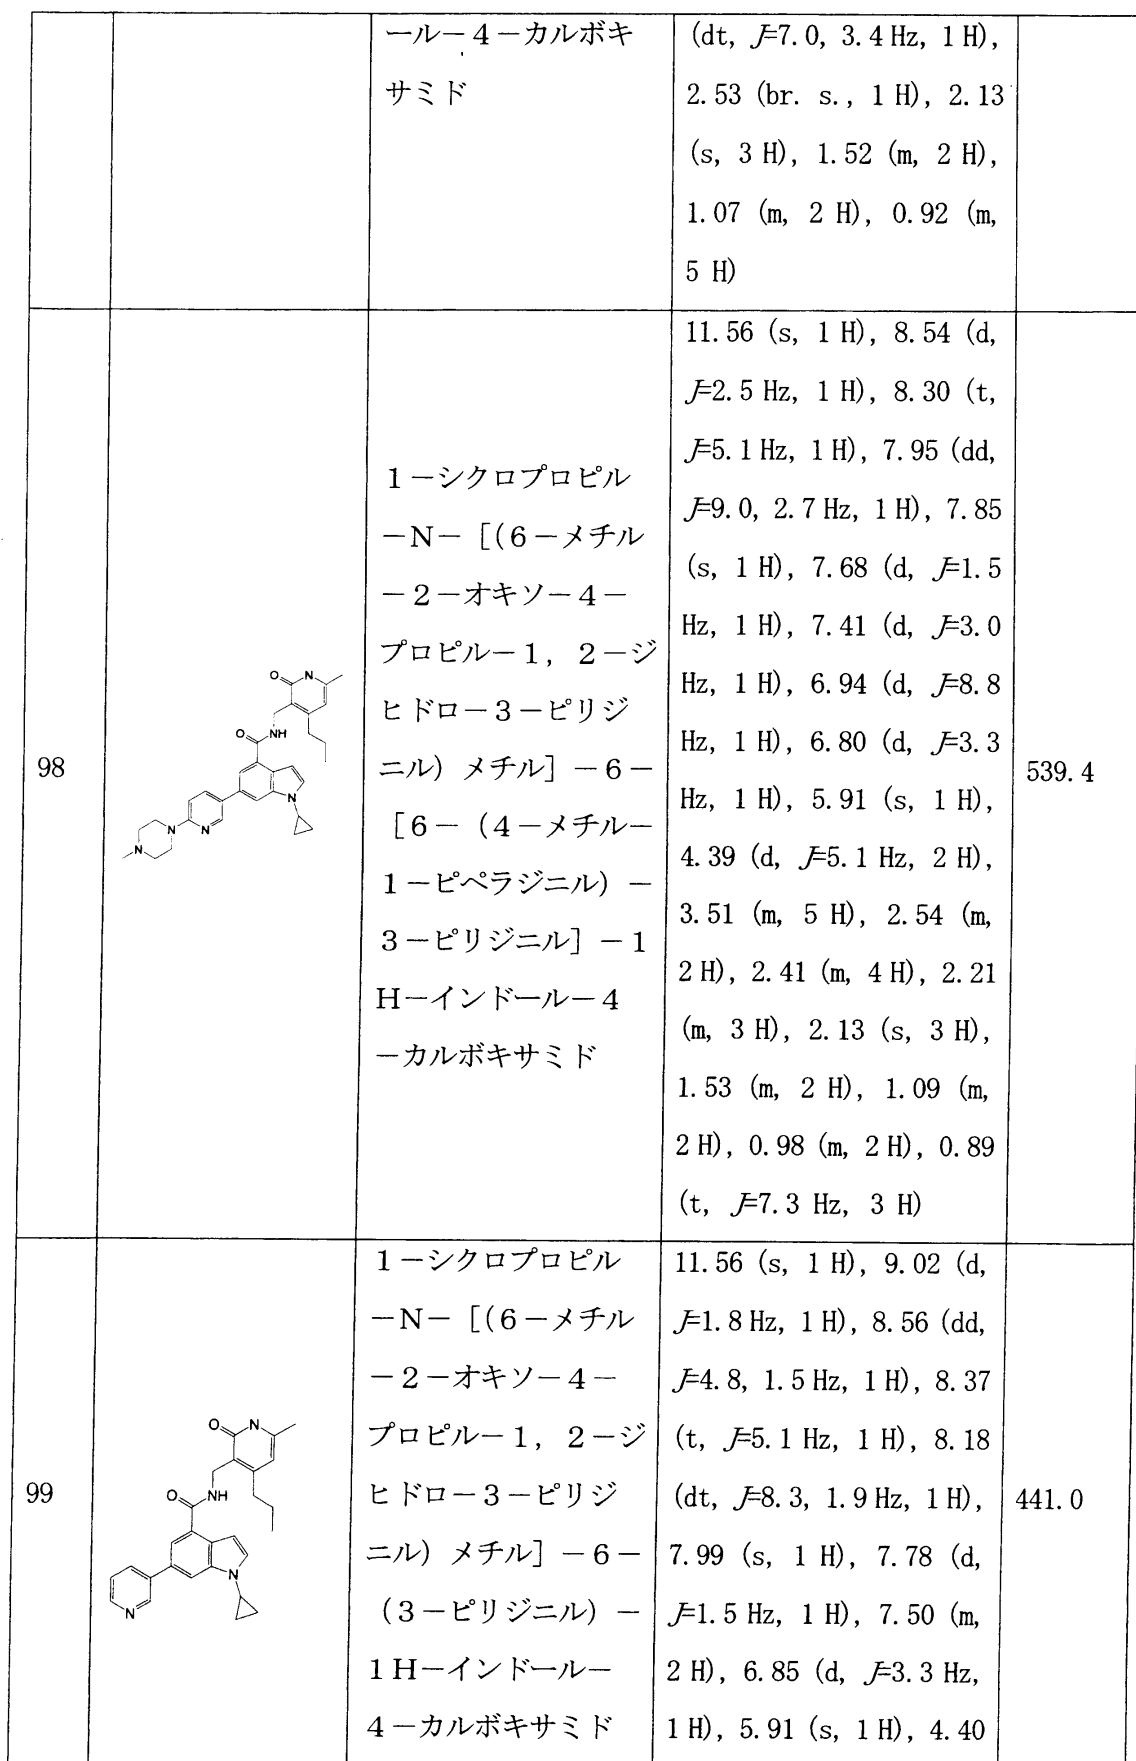 ール－４－カルボキ
サミド
(dt, J=7.0, 3.4 Hz, 1 H),
2.53 (br. s., 1 H), 2.13
(s, 3 H), 1.52 (m, 2 H),
1.07 (m, 2 H), 0.92 (m,
5 H)
98
O
N
NH
O
N
N
N
N
１－シクロプロピル
－N－［(６－メチル
－２－オキソ－４－
プロピル－１，２－ジ
ヒドロ－３－ピリジ
ニル）メチル］－６－
［６－（４－メチル－
１－ピペラジニル）－
３－ピリジニル］－１
H－インドール－４
－カルボキサミド
11.56 (s, 1 H), 8.54 (d,
J=2.5 Hz, 1 H), 8.30 (t,
J=5.1 Hz, 1 H), 7.95 (dd,
J=9.0, 2.7 Hz, 1 H), 7.85
(s, 1 H), 7.68 (d, J=1.5
Hz, 1 H), 7.41 (d, J=3.0
Hz, 1 H), 6.94 (d, J=8.8
Hz, 1 H), 6.80 (d, J=3.3
Hz, 1 H), 5.91 (s, 1 H),
4.39 (d, J=5.1 Hz, 2 H),
3.51 (m, 5 H), 2.54 (m,
2 H), 2.41 (m, 4 H), 2.21
(m, 3 H), 2.13 (s, 3 H),
1.53 (m, 2 H), 1.09 (m,
2 H), 0.98 (m, 2 H), 0.89
(t, J=7.3 Hz, 3 H)
539.4
99
O
N
O
NH
N
N
１－シクロプロピル
－N－［(６－メチル
－２－オキソ－４－
プロピル－１，２－ジ
ヒドロ－３－ピリジ
ニル）メチル］－６－
（３－ピリジニル）－
１H－インドール－
４－カルボキサミド
11.56 (s, 1 H), 9.02 (d,
J=1.8 Hz, 1 H), 8.56 (dd,
J=4.8, 1.5 Hz, 1 H), 8.37
(t, J=5.1 Hz, 1 H), 8.18
(dt, J=8.3, 1.9 Hz, 1 H),
7.99 (s, 1 H), 7.78 (d,
J=1.5 Hz, 1 H), 7.50 (m,
2 H), 6.85 (d, J=3.3 Hz,
1 H), 5.91 (s, 1 H), 4.40
441.0